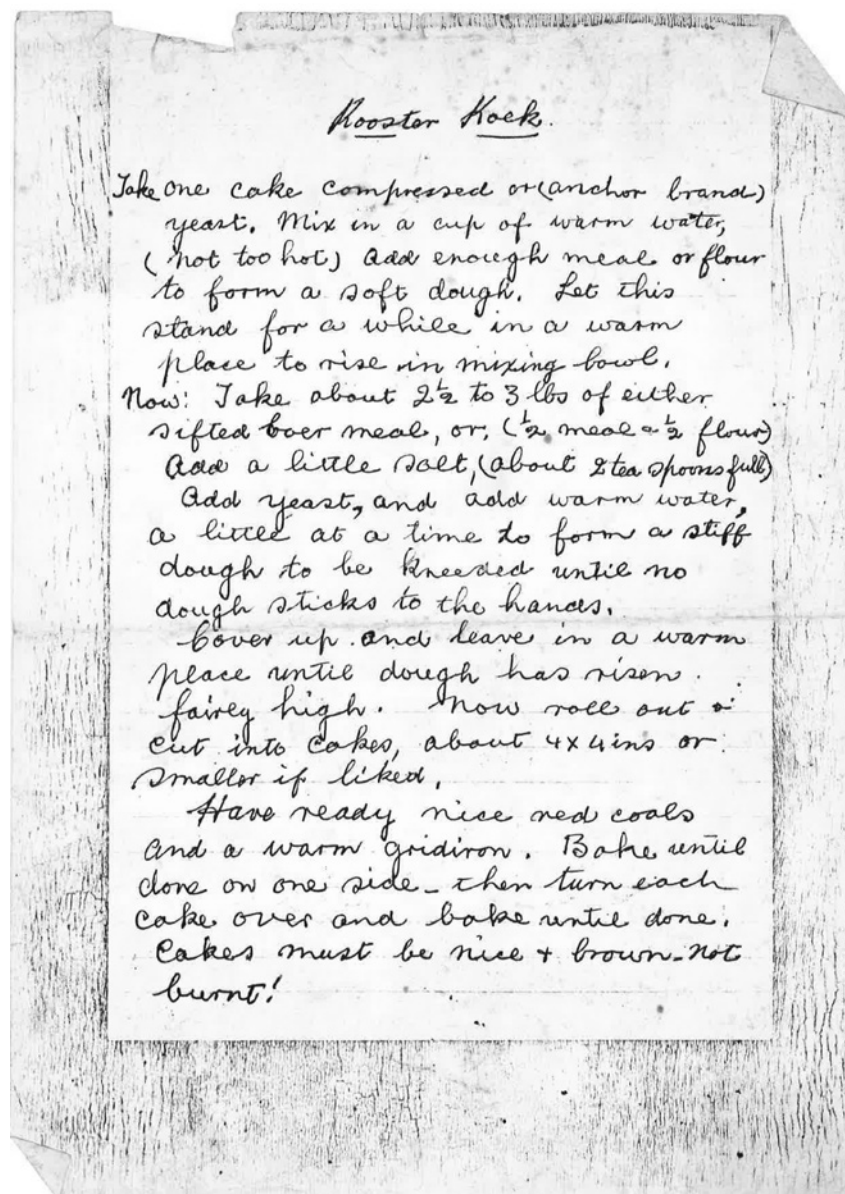 Rooster Koek.
Take one cake compressed or (anchor brand)
yeast. Mix in a cup of warm water,
(not too hot) add enough meal or flour
to form a soft dough. Let this
stand for a while in a warm
place to rise in mixing bowl.
Now: Take about 2½ to 3 lbs of either
sifted boer meal, or, (½ meal & ½ flour)
Add a little salt, (about 2 tea spoons full)
Add yeast, and add warm water,
a little at a time to form a stiff
dough to be kneeded until no
dough sticks to the hands.
Cover up and leave in a warm
place until dough has risen
fairly high. Now roll out &
cut into cakes, about 4x4ins or
smaller if liked.
Have ready nice red coals
and a warm gridiron. Bake until
done on one side - then turn each
cake over and bake until done.
Cakes must be nice + brown - not
burnt!